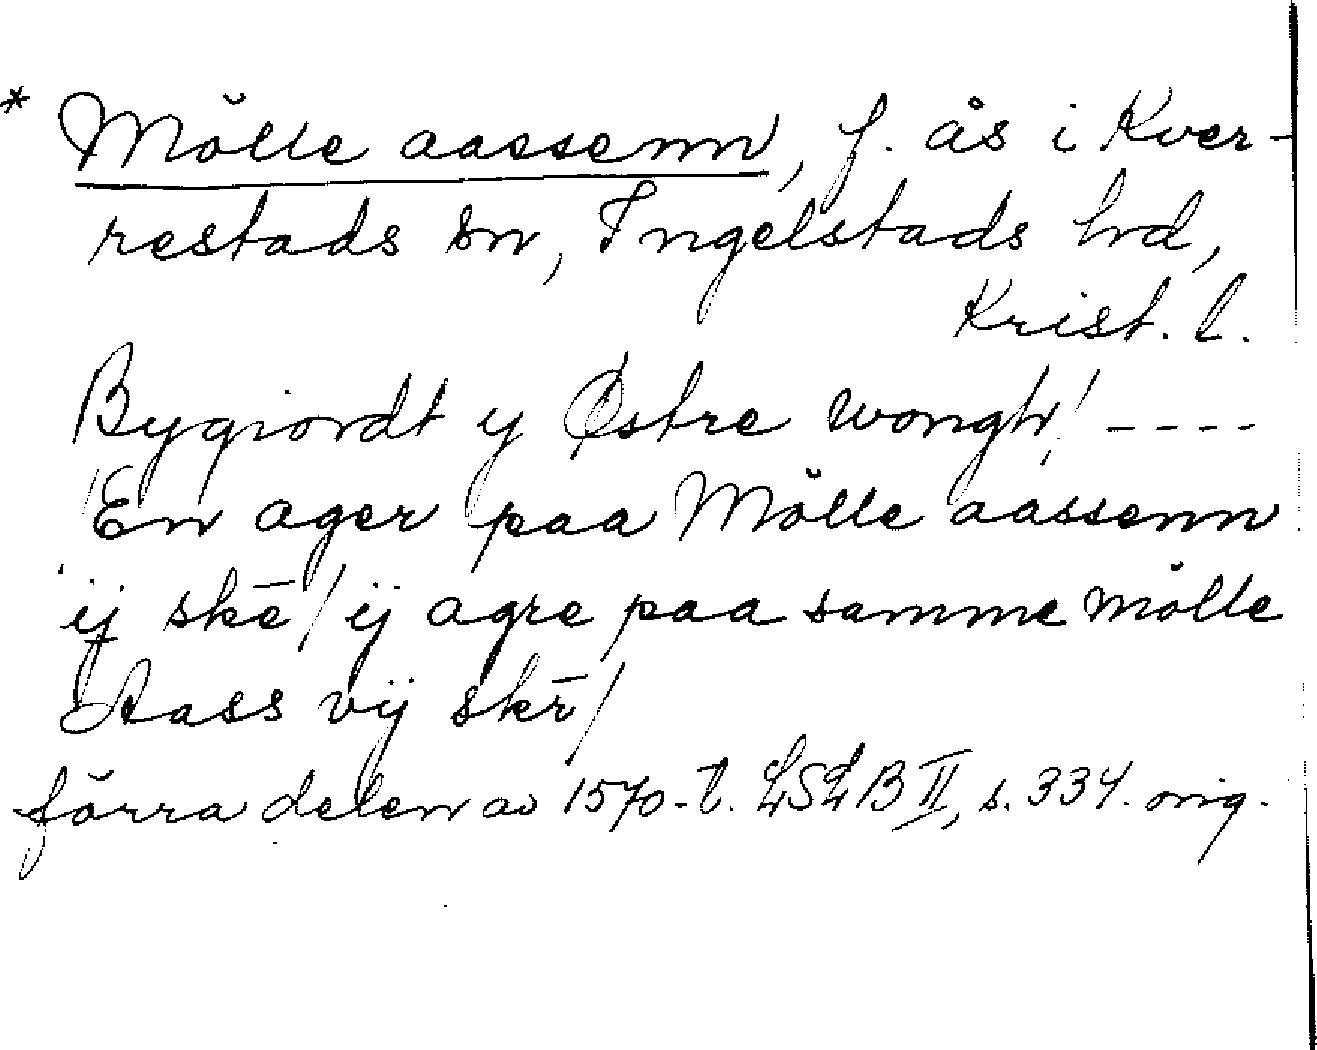 * Mölle aassenn, f. ås i Kver-
restads sn, Ingelstads hd,
Krist. l.
Bygiordt y Østre wongh! ----
En ager paa Mölle aassenn
ij skē / ij agre paa samme mölle
Aass vij skē /
förra delen av 1570-t. LSLB II, s. 334. orig.